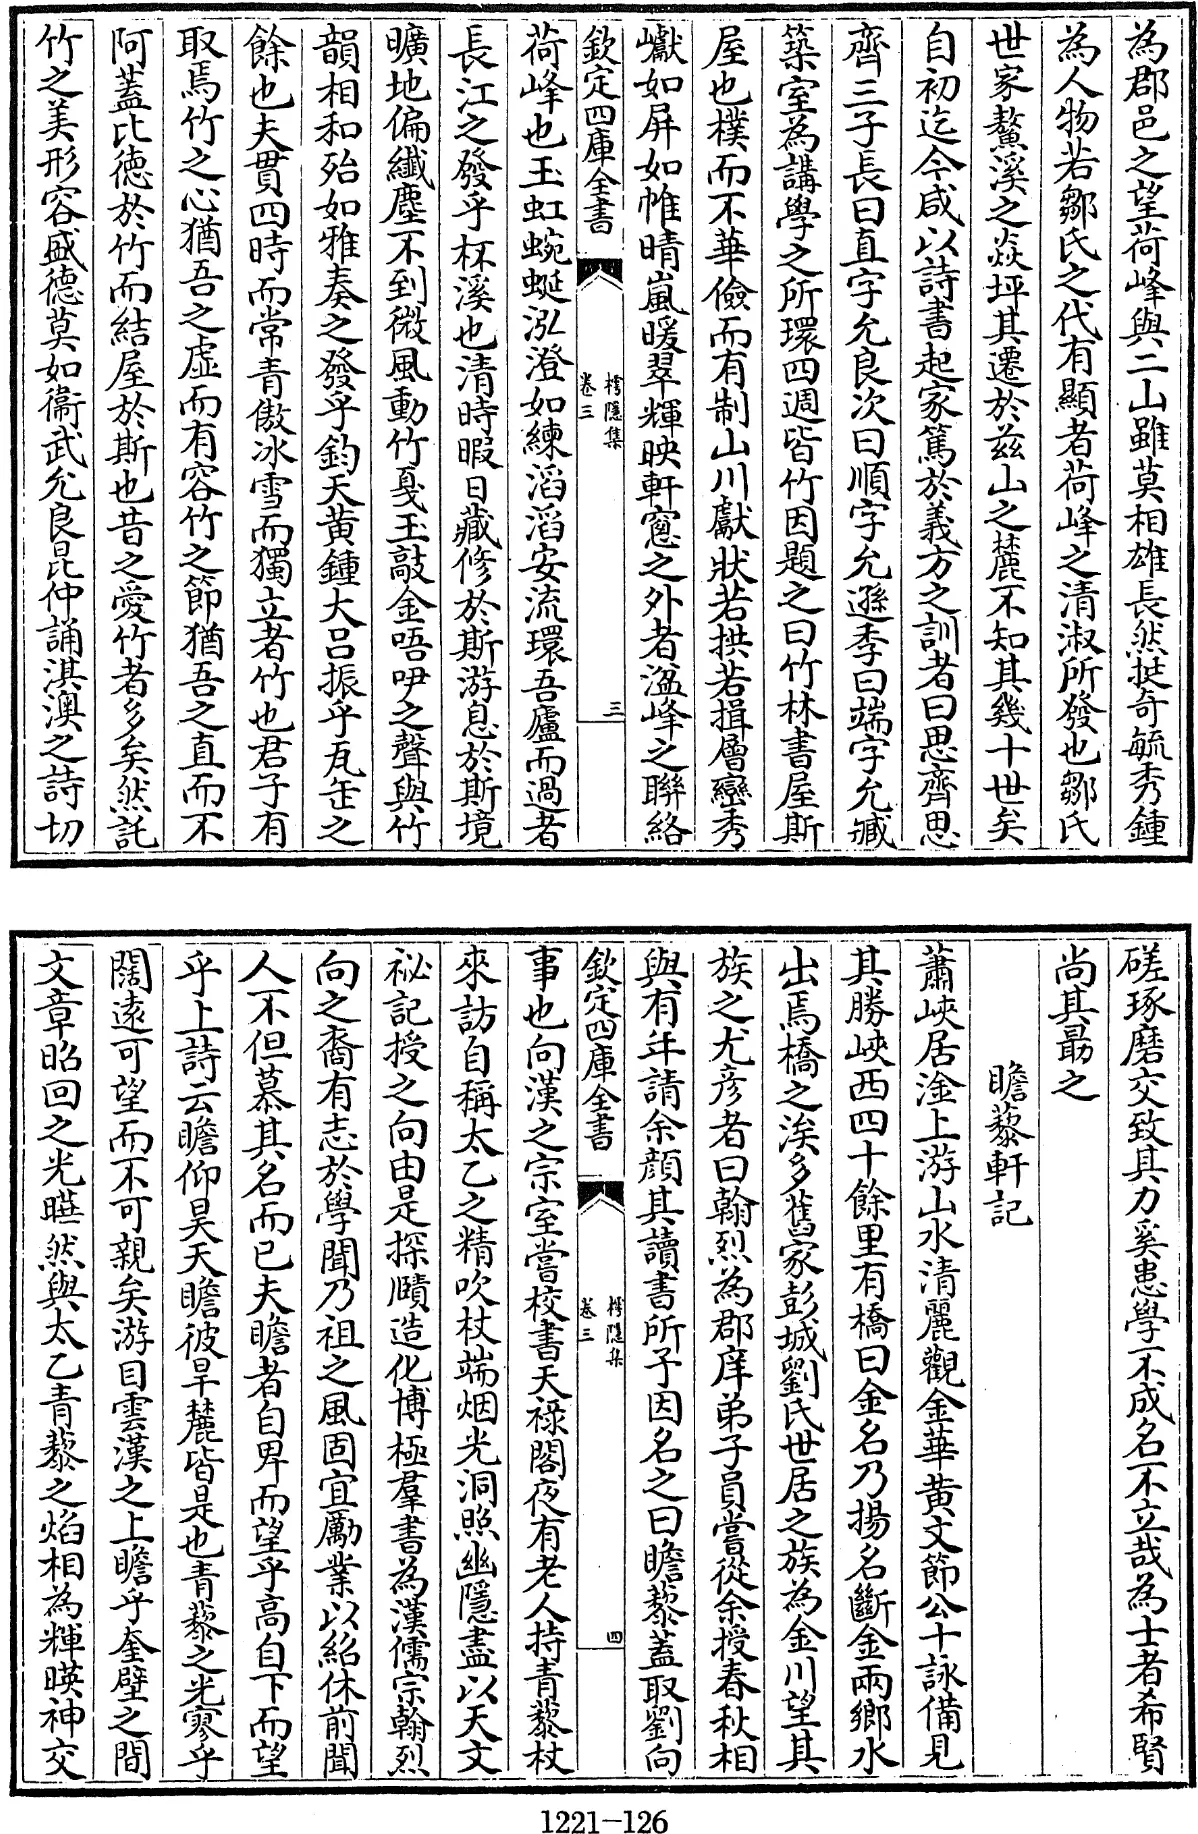 為郡邑之望荷峰與二山雖莫相雄長然挺奇毓秀鍾
為人物若鄒氏之代有顯者荷峰之清淑所發也鄒氏
世家鰲溪之焱坪其遷於兹山之麓不知其幾十世矣
自初迄今咸以詩書起家篤於義方之訓者曰思齊思
齊三子長曰直字允良次曰順字允遜季曰端字允臧
築室為講學之所環四週皆竹因題之曰竹林書屋斯
屋也樸而不華儉而有制山川獻狀若拱若揖層巒秀
巘如屏如帷晴嵐暖翠輝映軒窓之外者溋峰之聯絡
欽定四庫全書
樗隱集
卷三
三
荷峰也玉虹蜿蜒泓澄如練滔滔安流環吾廬而過者
長江之發乎杯溪也清時暇日藏修於斯游息於斯境
曠地偏纖塵不到微風動竹戛玉敲金唔咿之聲與竹
韻相和殆如雅奏之發乎鈞天黄鍾大吕振乎瓦缶之
餘也夫貫四時而常青傲冰雪而獨立者竹也君子有
取焉竹之心猶吾之虛而有容竹之節猶吾之直而不
阿蓋比德於竹而結屋於斯也昔之愛竹者多矣然託
竹之美形容盛德莫如衞武允良昆仲誦淇澳之詩切
磋琢磨交致其力奚患學不成名不立哉為士者希賢
尚其勗之
瞻藜軒記
蕭峽居淦上游山水清麗觀金華黄文節公十詠備見
其勝峽西四十餘里有橋曰金名乃揚名斷金兩鄉水
出焉橋之涘多舊家彭城劉氏世居之族為金川望其
族之尤彦者曰翰烈為郡庠弟子員嘗從余授春秋相
與有年請余顔其讀書所予因名之曰瞻藜蓋取劉向
欽定四庫全書
樗隱集
卷三
四
事也向漢之宗室嘗校書天祿閣夜有老人持青藜杖
來訪自稱太乙之精吹杖端烟光洞照幽隱盡以天文
祕記授之向由是探賾造化博極羣書為漢儒宗翰烈
向之裔有志於學聞乃祖之風固宜勵業以紹休前聞
人不但慕其名而已夫瞻者自卑而望乎高自下而望
乎上詩云瞻仰昊天瞻彼旱麓皆是也青藜之光寥乎
闊遠可望而不可親矣游目雲漢之上瞻乎奎壁之間
文章昭回之光曄然與太乙青藜之焰相為輝暎神交
1221-126